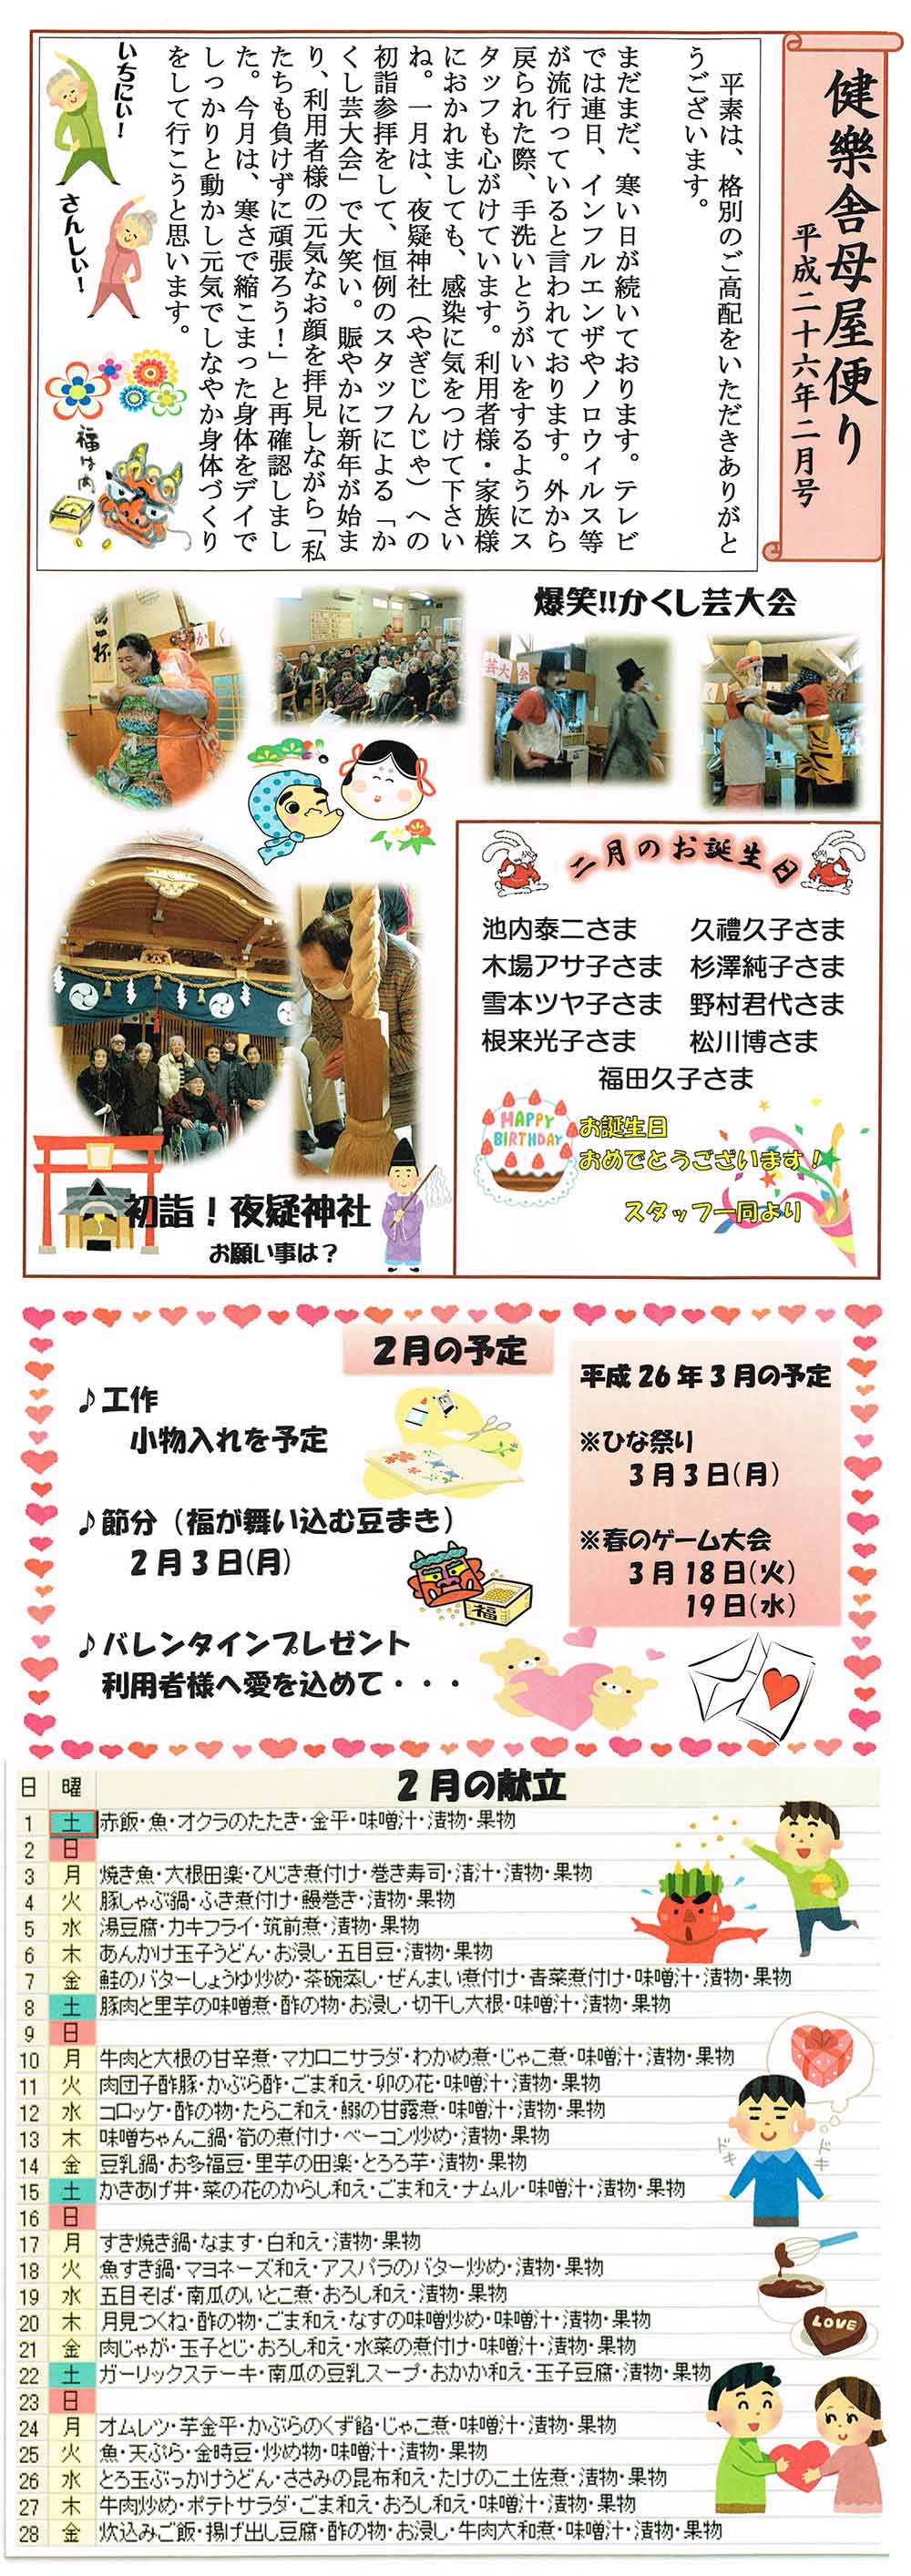 健樂舎母屋便り
平成二十六年二月号
平素は、格別のご高配をいただきありがと
うございます。
まだまだ、寒い日が続いております。テレビ
では連日、インフルエンザやノロウィルス等
が流行っていると言われております。外から
戻られた際、手洗いとうがいをするようにス
タッフも心がけています。利用者様・家族様
におかれましても、感染に気をつけて下さい
ね。一月は、夜疑神社（やぎじんじゃ）への
初詣参拝をして、恒例のスタッフによる「か
くし芸大会」で大笑い。賑やかに新年が始ま
り、利用者様の元気なお顔を拝見しながら「私
たちも負けずに頑張ろう！」と再確認しまし
た。今月は、寒さで縮こまった身体をデイで
しっかりと動かし元気でしなやか身体づくり
をして行こうと思います。
いちにい！
さんしい！
福は内
爆笑!!かくし芸大会
芸大会
二月のお誕生日
池内泰二さま 久禮久子さま
木場アサ子さま 杉澤純子さま
雪本ツヤ子さま 野村君代さま
根来光子さま 松川博さま
福田久子さま
HAPPY
BIRTHDAY
お誕生日
おめでとうございます！
スタッフ一同より
初詣！夜疑神社
お願い事は？
２月の予定
♪工作
小物入れを予定
♪節分（福が舞い込む豆まき）
２月３日(月)
福
♪バレンタインプレゼント
利用者様へ愛を込めて・・・
平成26年３月の予定
※ひな祭り
３月３日(月)
※春のゲーム大会
３月18日(火)
19日(水)
２月の献立
日 曜
1 土 赤飯・魚・オクラのたたき・金平・味噌汁・漬物・果物
2 日
3 月 焼き魚・大根田楽・ひじき煮付け・巻き寿司・清汁・漬物・果物
4 火 豚しゃぶ鍋・ふき煮付け・鰻巻き・漬物・果物
5 水 湯豆腐・カキフライ・筑前煮・漬物・果物
6 木 あんかけ玉子うどん・お浸し・五目豆・漬物・果物
7 金 鮭のバターしょうゆ炒め・茶碗蒸し・ぜんまい煮付け・青菜煮付け・味噌汁・漬物・果物
8 土 豚肉と里芋の味噌煮・酢の物・お浸し・切干し大根・味噌汁・漬物・果物
9 日
10 月 牛肉と大根の甘辛煮・マカロニサラダ・わかめ煮・じゃこ煮・味噌汁・漬物・果物
11 火 肉団子酢豚・かぶら酢・ごま和え・卯の花・味噌汁・漬物・果物
12 水 コロッケ・酢の物・たらこ和え・鰯の甘露煮・味噌汁・漬物・果物
13 木 味噌ちゃんこ鍋・筍の煮付け・ベーコン炒め・漬物・果物
14 金 豆乳鍋・お多福豆・里芋の田楽・とろろ芋・漬物・果物
15 土 かきあげ丼・菜の花のからし和え・ごま和え・ナムル・味噌汁・漬物・果物
16 日
17 月 すき焼き鍋・なます・白和え・漬物・果物
18 火 魚すき鍋・マヨネーズ和え・アスパラのバター炒め・漬物・果物
19 水 五目そば・南瓜のいとこ煮・おろし和え・漬物・果物
20 木 月見つくね・酢の物・ごま和え・なすの味噌炒め・味噌汁・漬物・果物
21 金 肉じゃが・玉子とじ・おろし和え・水菜の煮付け・味噌汁・漬物・果物
22 土 ガーリックステーキ・南瓜の豆乳スープ・おかか和え・玉子豆腐・漬物・果物
23 日
24 月 オムレツ・芋金平・かぶらのくず餡・じゃこ煮・味噌汁・漬物・果物
25 火 魚・天ぷら・金時豆・炒め物・味噌汁・漬物・果物
26 水 とろ玉ぶっかけうどん・ささみの昆布和え・たけのこ土佐煮・漬物・果物
27 木 牛肉炒め・ポテトサラダ・ごま和え・おろし和え・味噌汁・漬物・果物
28 金 炊込みご飯・揚げ出し豆腐・酢の物・お浸し・牛肉大和煮・味噌汁・漬物・果物
ドキ
ドキ
LOVE